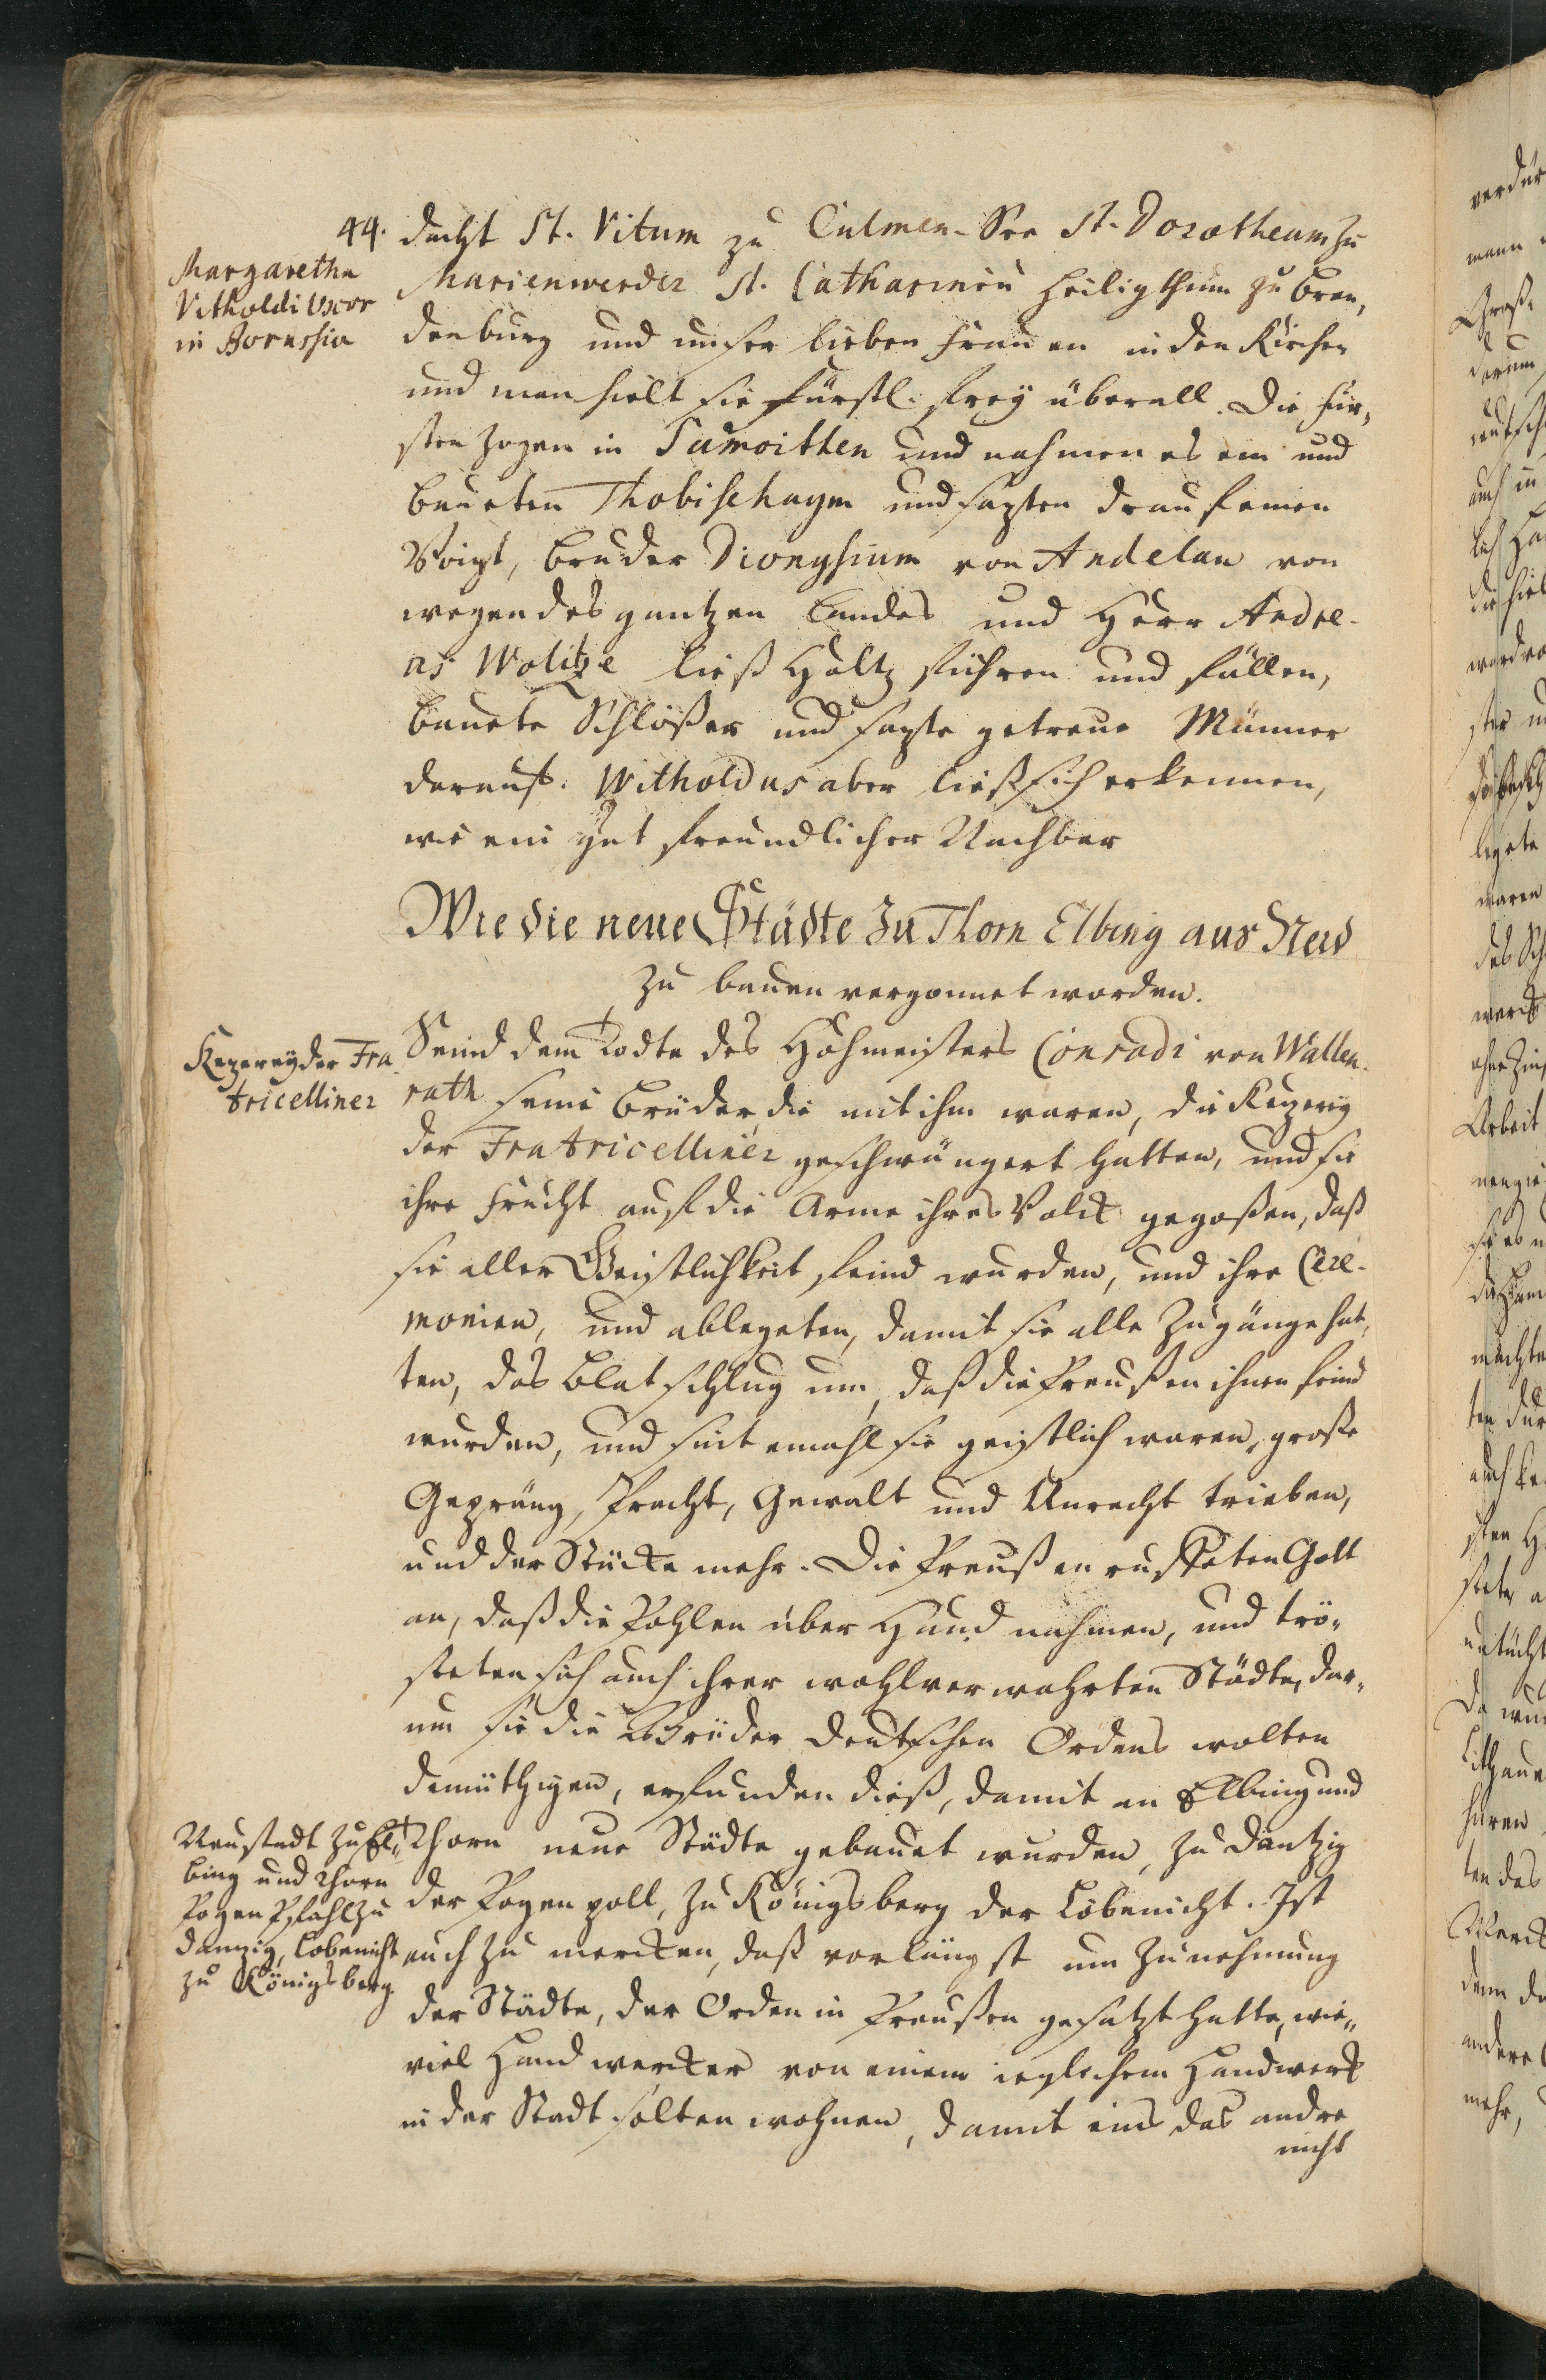 44.
Margaretha
Vitholdi Uxor
in Borussia
dacht St. Vitum zu Culmen-See St. Dorotheam zu
Marienwerder St. Catharinen Heiligthum zu Bran-
denburg und unser lieben Frauen in den Kirchen
und man hielt sie Fürstl. frey überall. Die Für-
sten zogen in Samoitten und nahmen es ein und
baueten Thobischaym und sazten drauf einen
Voigt, Bruder Dionysium von Andelau von
wegen des gantzen Landes und Herr Andre-
as Wolitze ließ Holtz führen und fällen,
bauete Schlößer und sazte getreue Männer
darauf. Witholdus aber ließ sich erkennen,
wie ein gut freundlicher Nachbar
Wie die neue Städte zu Thorn Elbing aus Neid
zu bauen vergönnet worden.
Kezerey der Fra-
tricelliner
Seind dem Todte des Hohmeisters Conradi von Wallen-
rath seine Brüder, die mit ihm waren, die Kezerey
der Fratricelliner geschwängert hatten, und sie
ihre Frucht auf die Arme ihres Volck gegoßen, daß
sie aller Geistlichkeit feind wurden, und ihre Cere-
monien, und ablegeten, damit sie alle Zugänge hat-
ten, das Blat schlug um, daß die Preußen ihnen feind
wurden, und sintemahl sie geistlich waren, große
Gepräng, Pracht, Gewalt und Unrecht trieben,
und der Stücke mehr. Die Preußen ruffeten Gott
an, daß die Pohlen über Hand nahmen, und trö-
steten sich auch ihrer wohlverwahrten Städte, dar-
um sie die Brüder Deutschen Ordens wolten
demüthigen, erfunden dieß, damit an Elbing und
Neustadt zu El-
bing und Thorn
Pogen Pfahl zu
Danzig, Lobenicht
zu Königsberg.
Thorn neue Städte gebauet wurden, zu Dantzig
der Pogenpoll, zu Königsberg der Löbenicht. Ist
auch zu mercken, daß vorlängst um Zunehmung
der Städte, der Orden in Preußen gesatzt hatte, wie-
viel Handwercker von einem ieglichem Handwerck
in der Stadt solten wohnen, damit eins das andre
nicht